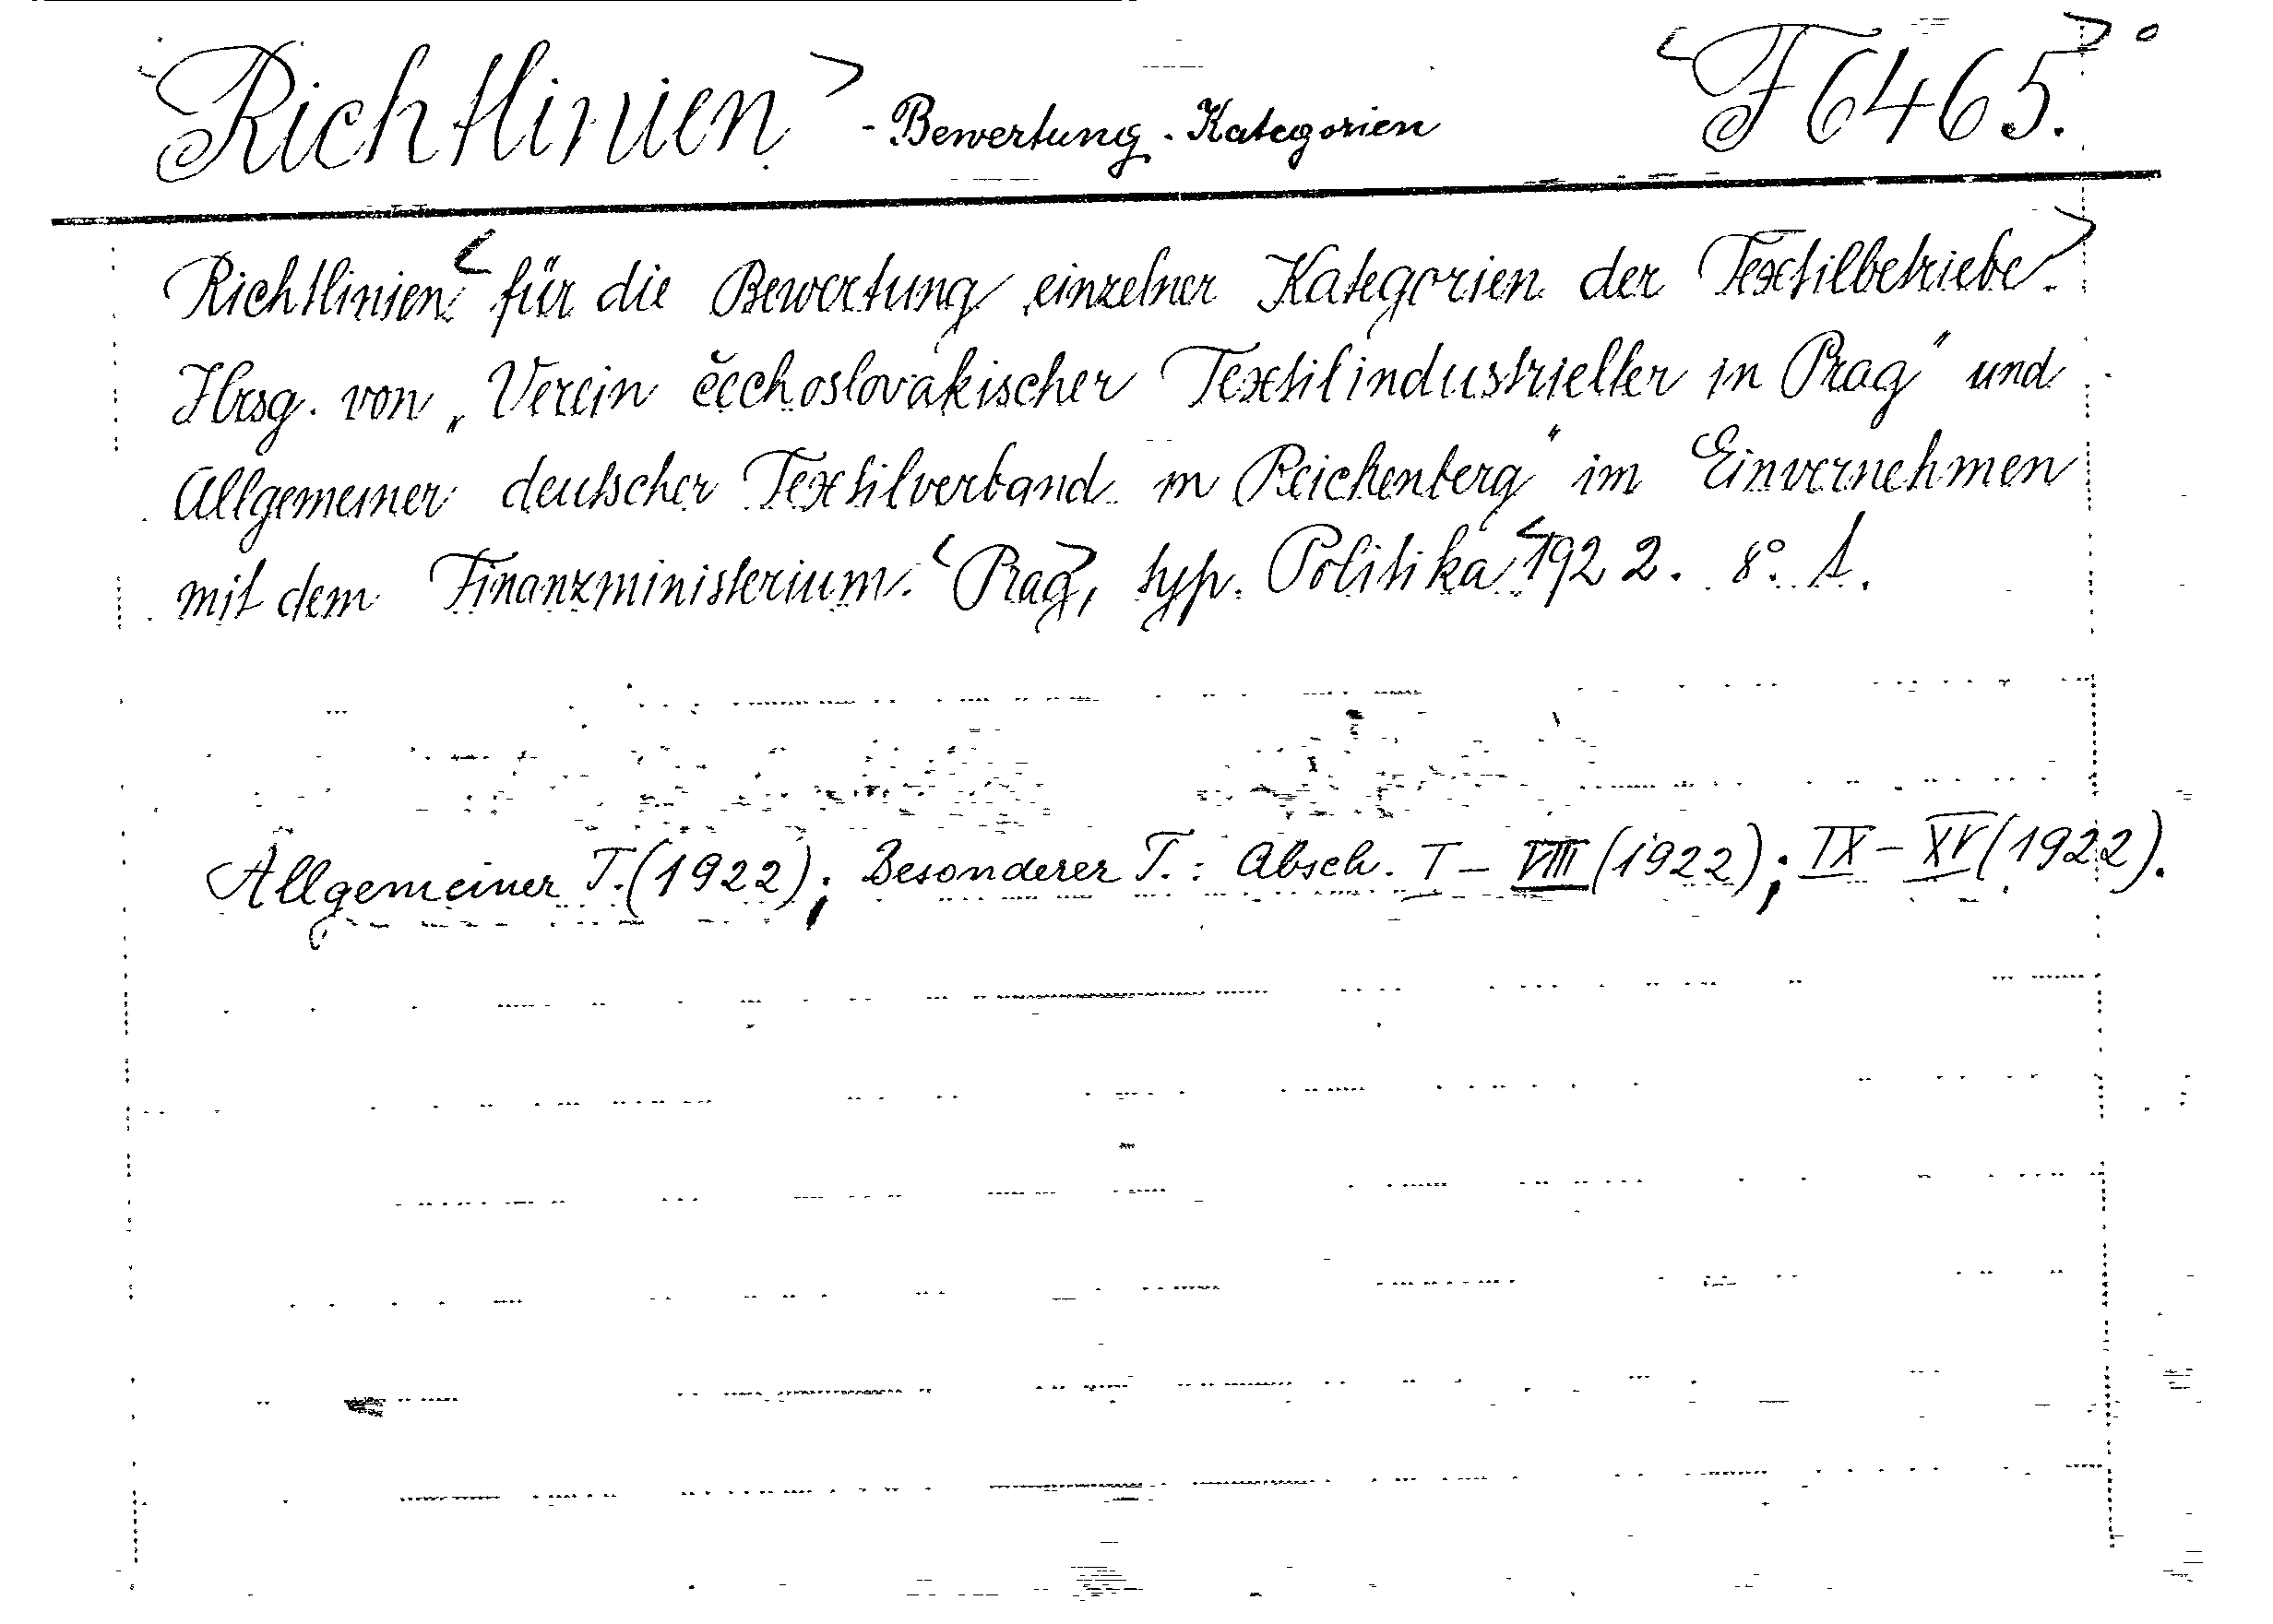 <Richtlinien> - Bewertung - Kategorien <F 6465.>°
Richtlinien < für die Bewertung einzelner Kategorien der Textilbetriebe>.
Hrsg. von „Verein čechoslovakischer Textilindustrieller in Prag" und
Allgemeiner deutscher Textilverband in Reichenberg" im Einvernehmen
mit dem Finanzministerium. <Prag>, typ. Politika <1922. 8°.
Allgemeiner T. (1922); Besonderer T.: Absch. I - VIII (1922); IX - XV (1922).